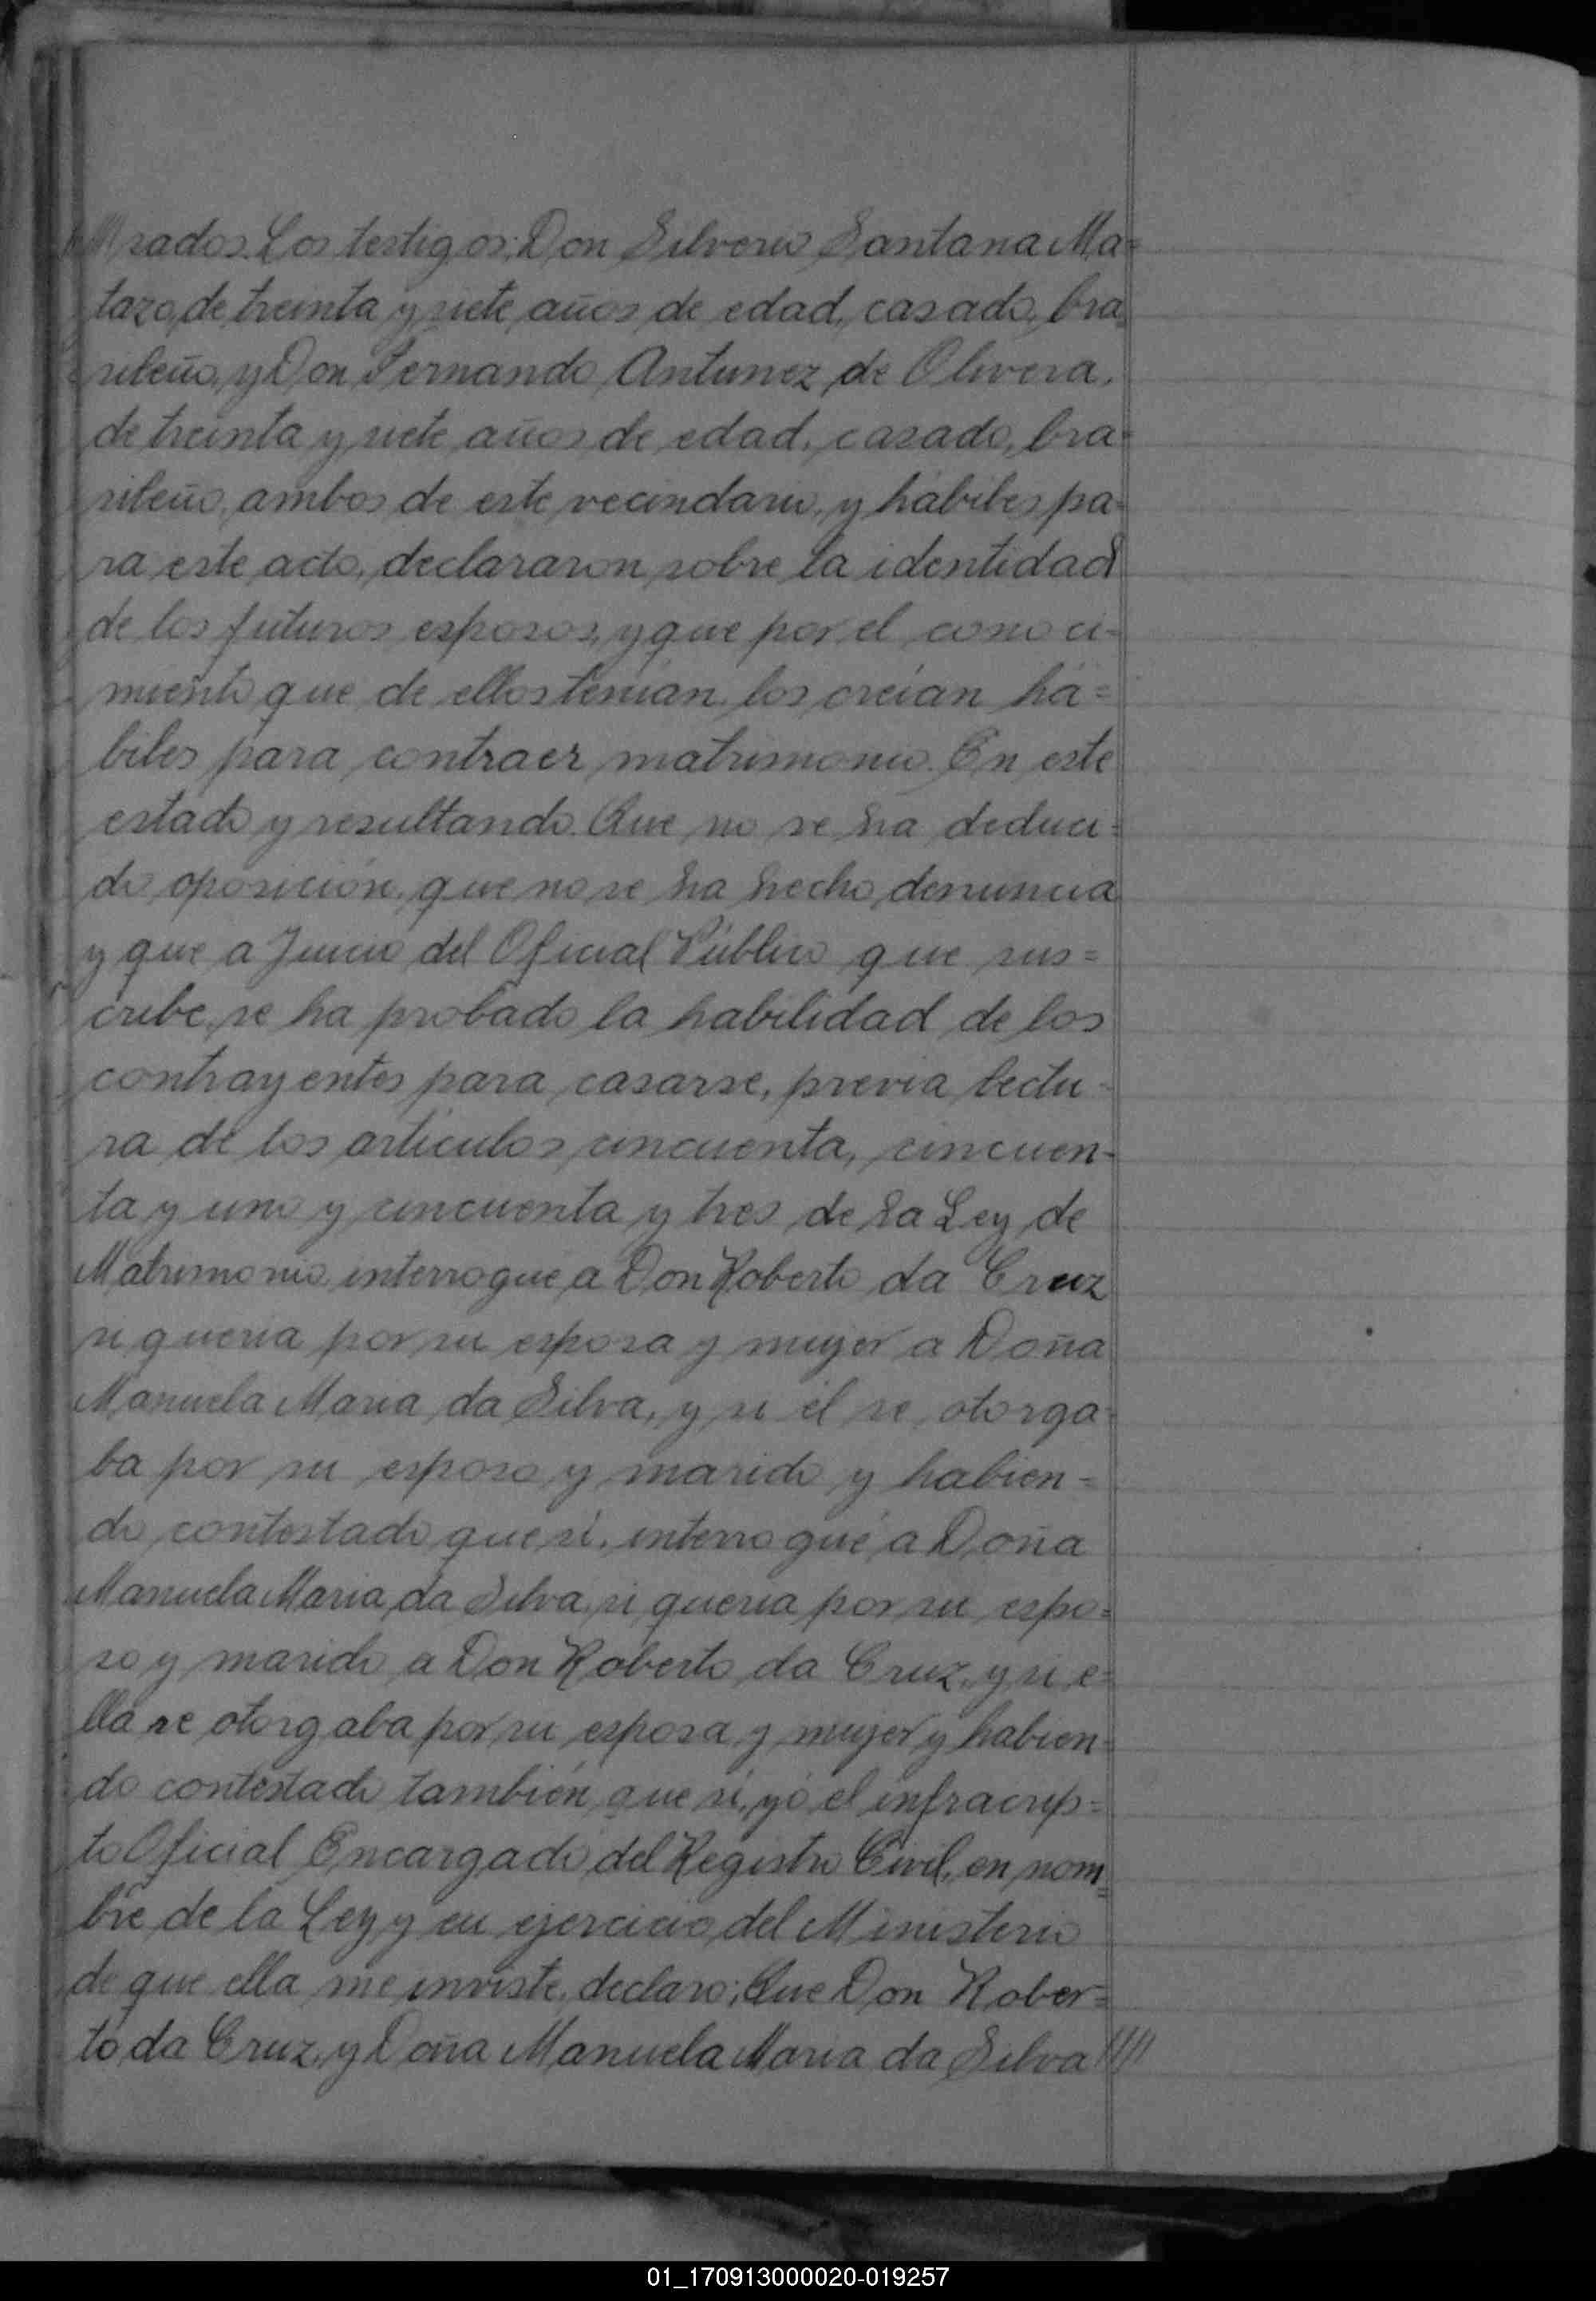 ////rados. Los testigos: Don Silverio Santana Ma=
tazo, de treinta y siete años de edad, casado, bra=
sileño, y Don Fernando Antunez de Olivera,
de treinta y siete años de edad, casado, bra=
sileño, ambos de este vecindario, y hábiles pa=
ra este acto, declararon sobre la identidad
de los futuros esposos, y que por el conoci=
miento que de ellos tenían, los creían há=
biles para contraer matrimonio. En este
estado y resultando: Que no se ha deduci=
do oposición, que no se ha hecho denuncia
y que a Juicio del Oficial Público que sus=
cribe, se ha probado la habilidad de los
contrayentes para casarse, previa lectu=
ra de los artículos cincuenta, cincuen-
ta y uno y cincuenta y tres de la Ley de
Matrimonio, interrogué a Don Roberto da Cruz
si quería por su esposa y mujer a Doña
Manuela Maria da Silva, y si él se otorga=
ba por su esposo y marido y habien=
do contestado que sí, interrogué a Doña
Manuela Maria da Silva, si quería por su espo=
so y marido a Don Roberto da Cruz, y si e=
lla se otorgaba por su esposa y mujer y habien=
do contestado también que sí, yo el infracrip=
to Oficial Encargado del Registro Civil, en nom=
bre de la Ley y en ejercicio del Ministerio
de que ella me inviste, declaro: Que Don Rober=
to da Cruz, y Doña Manuela Maria da Silva ////
01_170913000020-019257